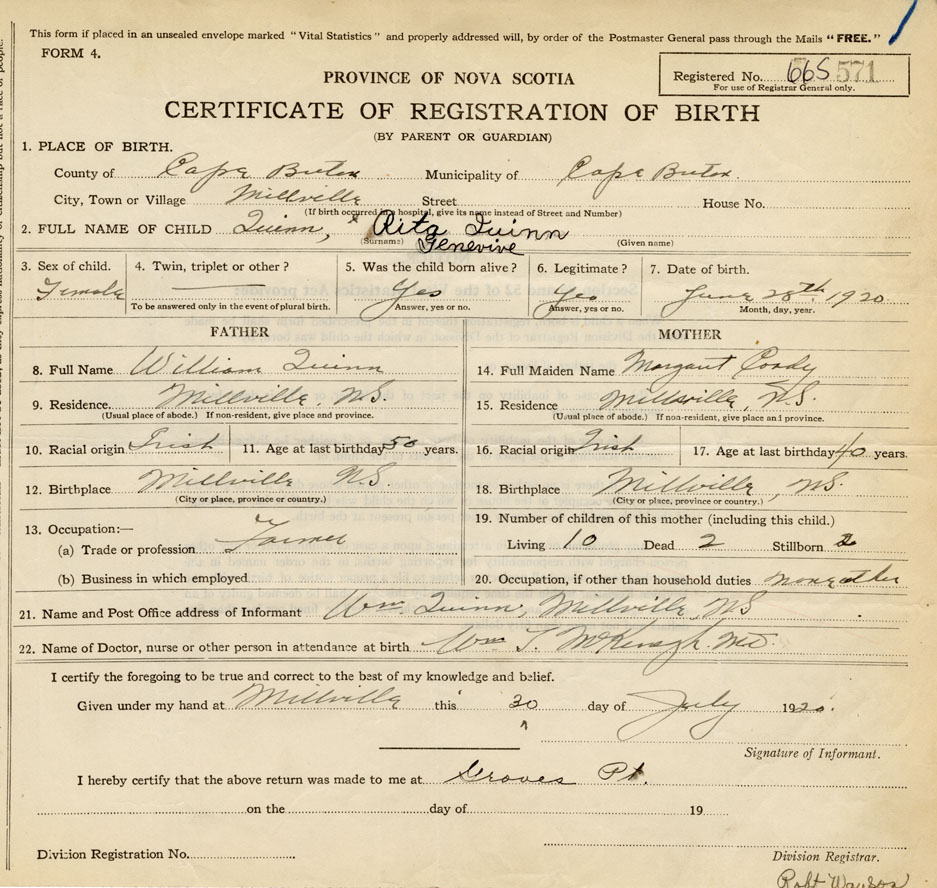 This form if placed in an unsealed envelope marked "Vital Statistics" and properly addressed will, by order of the Postmaster General pass through the Mails "FREE."
FORM 4.
Registered No. 665 571
For use of Registrar General only.
PROVINCE OF NOVA SCOTIA
CERTIFICATE OF REGISTRATION OF BIRTH
(BY PARENT OR GUARDIAN)
1. PLACE OF BIRTH.
County of Cape Breton Municipality of Cape Breton
City, Town or Village Millville Street House No.
(If birth occurred in a hospital, give its name instead of Street and Number)
2. FULL NAME OF CHILD Quinn, Rita Quinn
(Surname) Genevive (Given name)
3. Sex of child. 4. Twin, triplet or other? 5. Was the child born alive? 6. Legitimate? 7. Date of birth.
Female Yes Yes June 28th 1920
To be answered only in the event of plural birth. Answer, yes or no. Answer, yes or no. Month, day, year.
FATHER
8. Full Name William Quinn
9. Residence Millville, N.S.
(Usual place of abode.) If non-resident, give place and province.
10. Racial origin Irish 11. Age at last birthday 50 years.
12. Birthplace Millville N.S.
(City or place, province or country.)
13. Occupation:—
(a) Trade or profession Farmer
(b) Business in which employed
MOTHER
14. Full Maiden Name Margaret Coady
15. Residence Millsville, N.S.
(Usual place of abode.) If non-resident, give place and province.
16. Racial origin Irish 17. Age at last birthday 40 years.
18. Birthplace Millville, N.S.
(City or place, province or country.)
19. Number of children of this mother (including this child.)
Living 10 Dead 2 Stillborn
20. Occupation, if other than household duties none other
21. Name and Post Office address of Informant Wm. Quinn, Millville, N.S
22. Name of Doctor, nurse or other person in attendance at birth Wm T. McKeough M.D.
I certify the foregoing to be true and correct to the best of my knowledge and belief.
Given under my hand at Millville this 30 day of July 1920.
Signature of Informant.
I hereby certify that the above return was made to me at Groves Pt.
on the day of 19
Division Registration No.
Division Registrar.
Robt